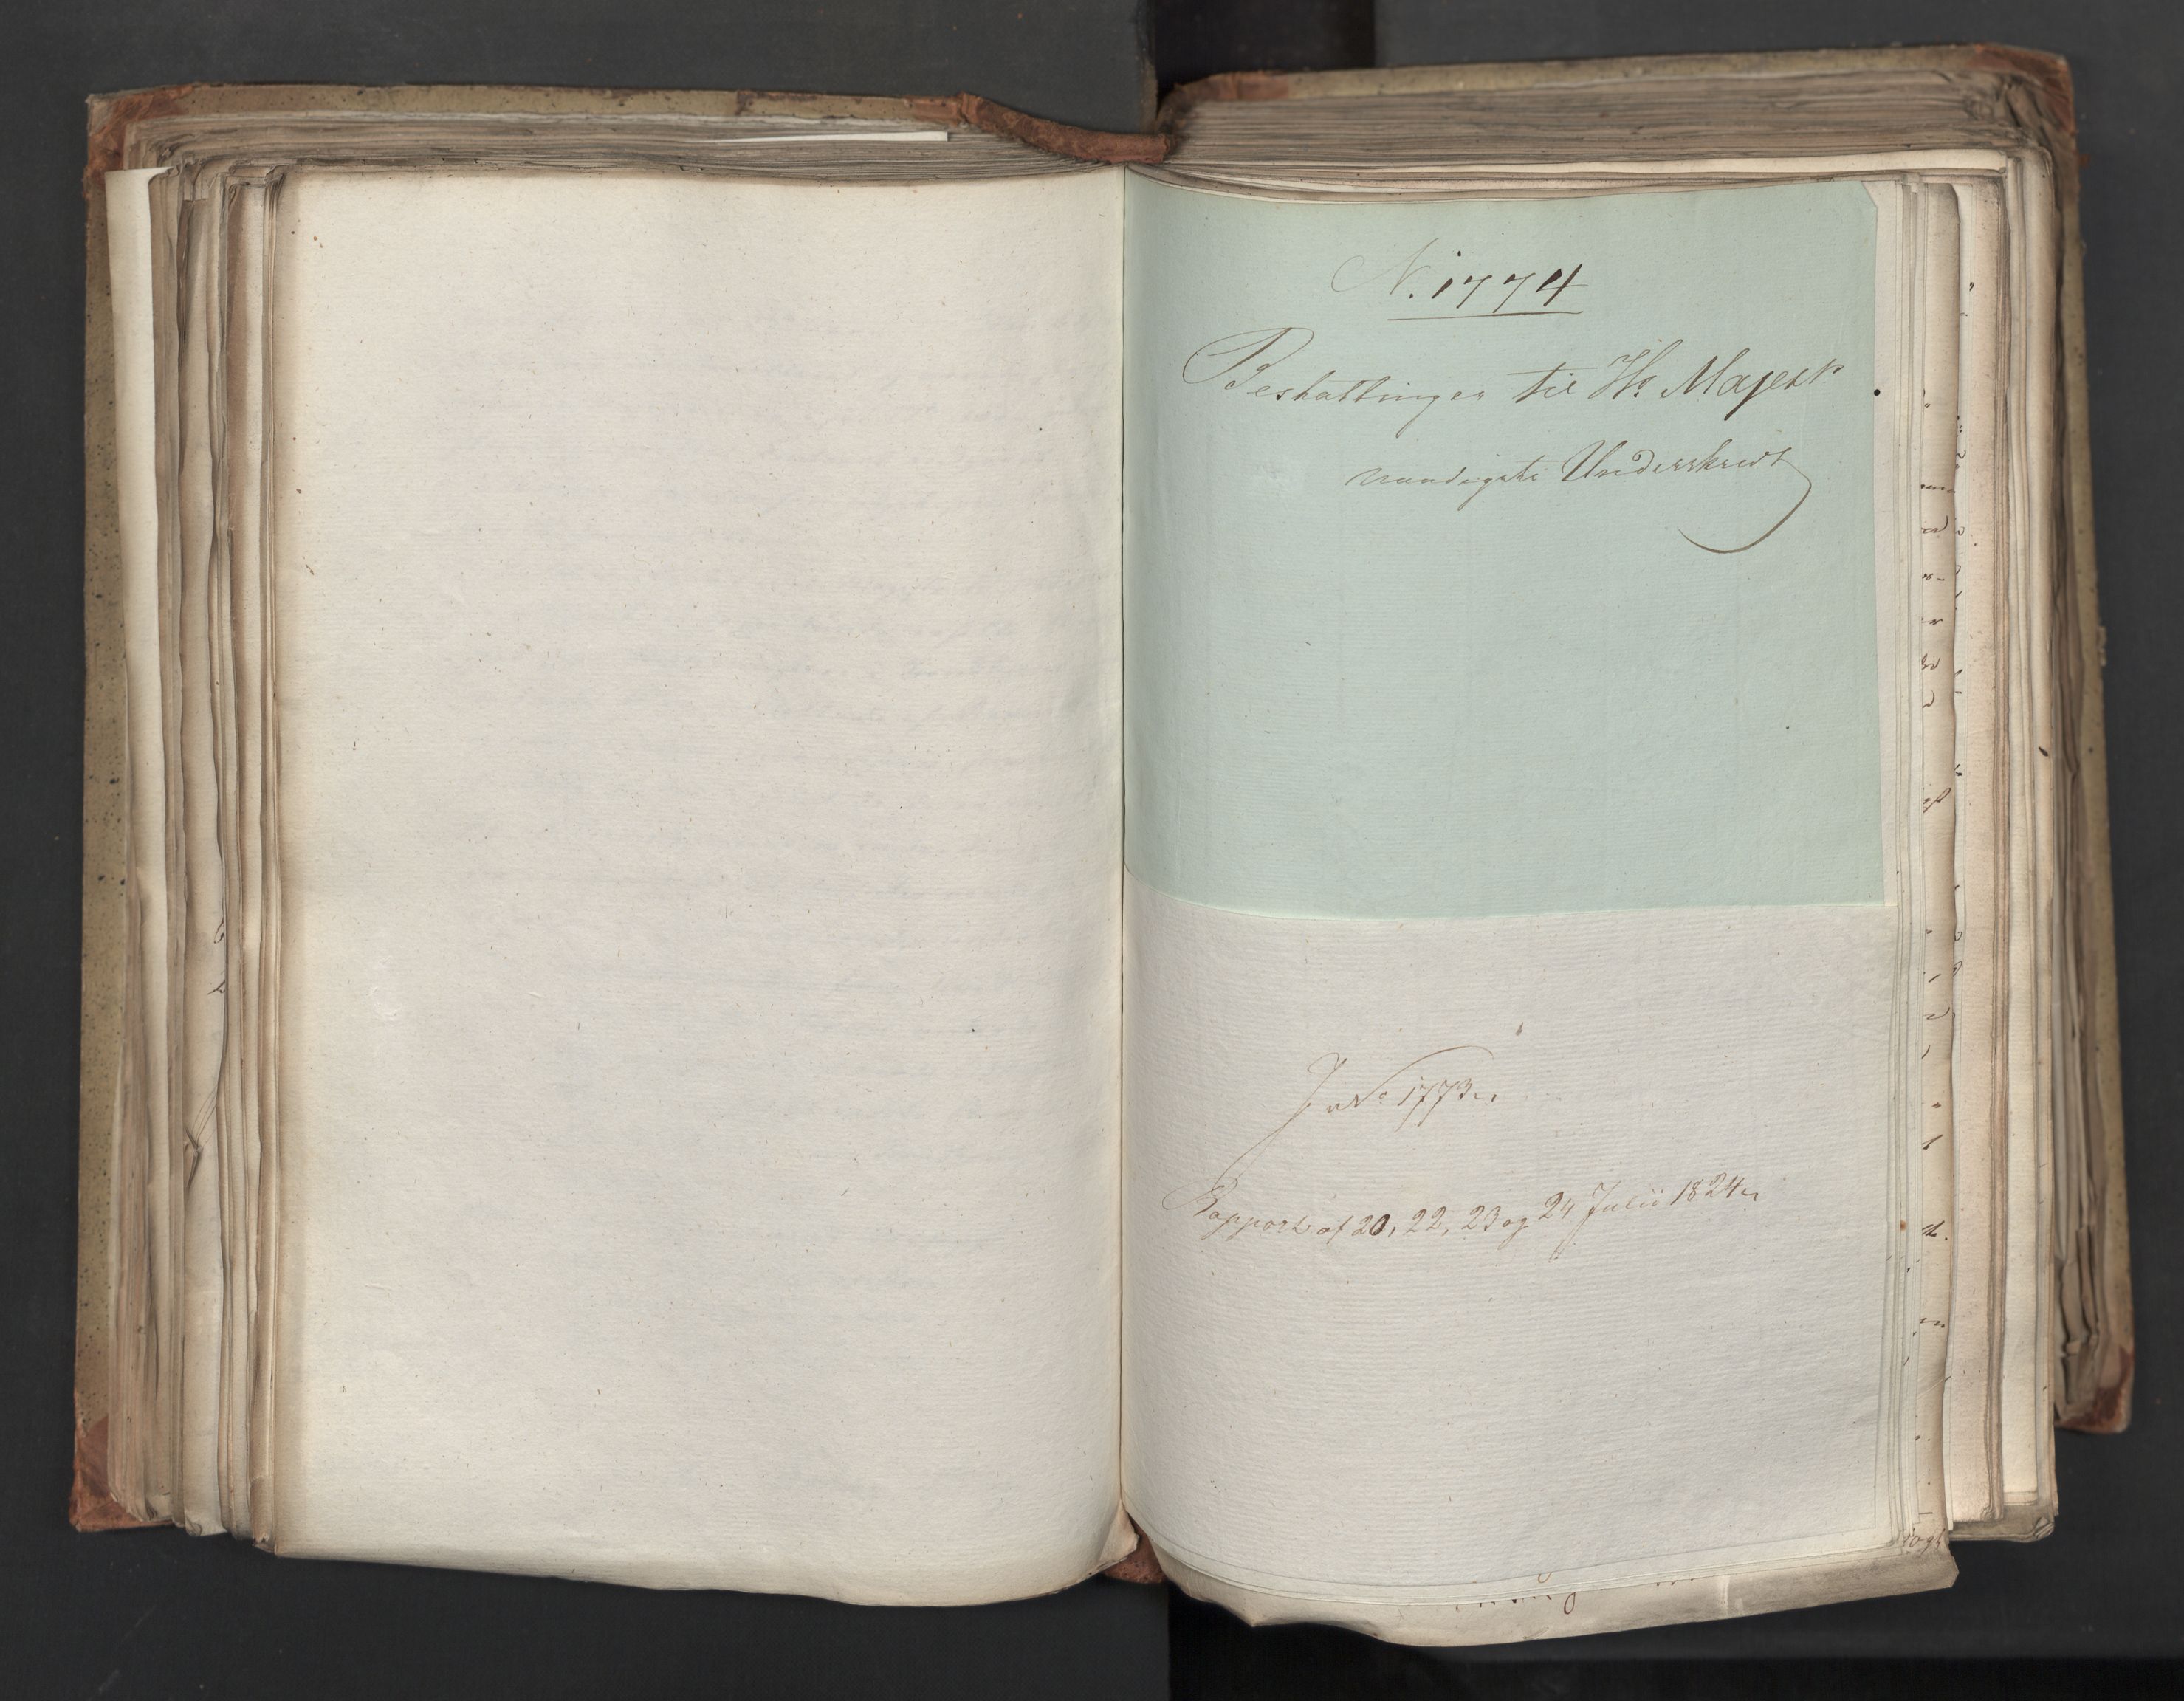 N. 1774
Bestallinger til Hs Majests
naadigste Underskrivt
J No 1773.
Rapport af 20, 22, 23 og 24 Julii 1824